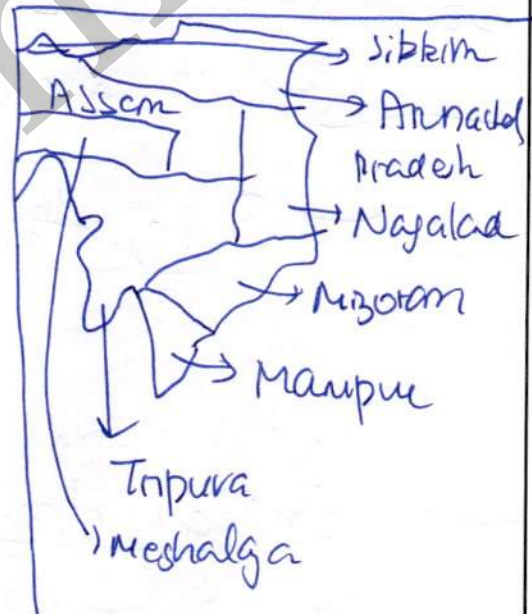 Sikkim
Assam
Arunachal
Pradesh
Nagalad
Mizoram
Manipur
Tripura
Meghalga